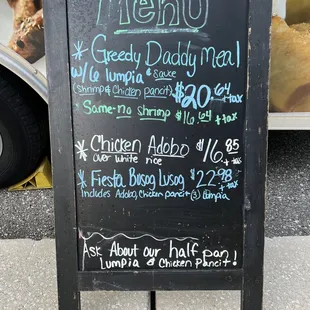 Menu
* Greedy Daddy Meal
w/6 lumpia & sauce
(shrimp & Chicken pancit) $20.64 + tax
Same-no shrimp $16.64 + tax
* Chicken Adobo $16.85
over white rice + tax
* Fiesta Busog Lusog $22.98 + tax
Includes Adobo, Chicken pancit (3) lumpia
Ask About our half pan
Lumpia & Chicken Pancit!